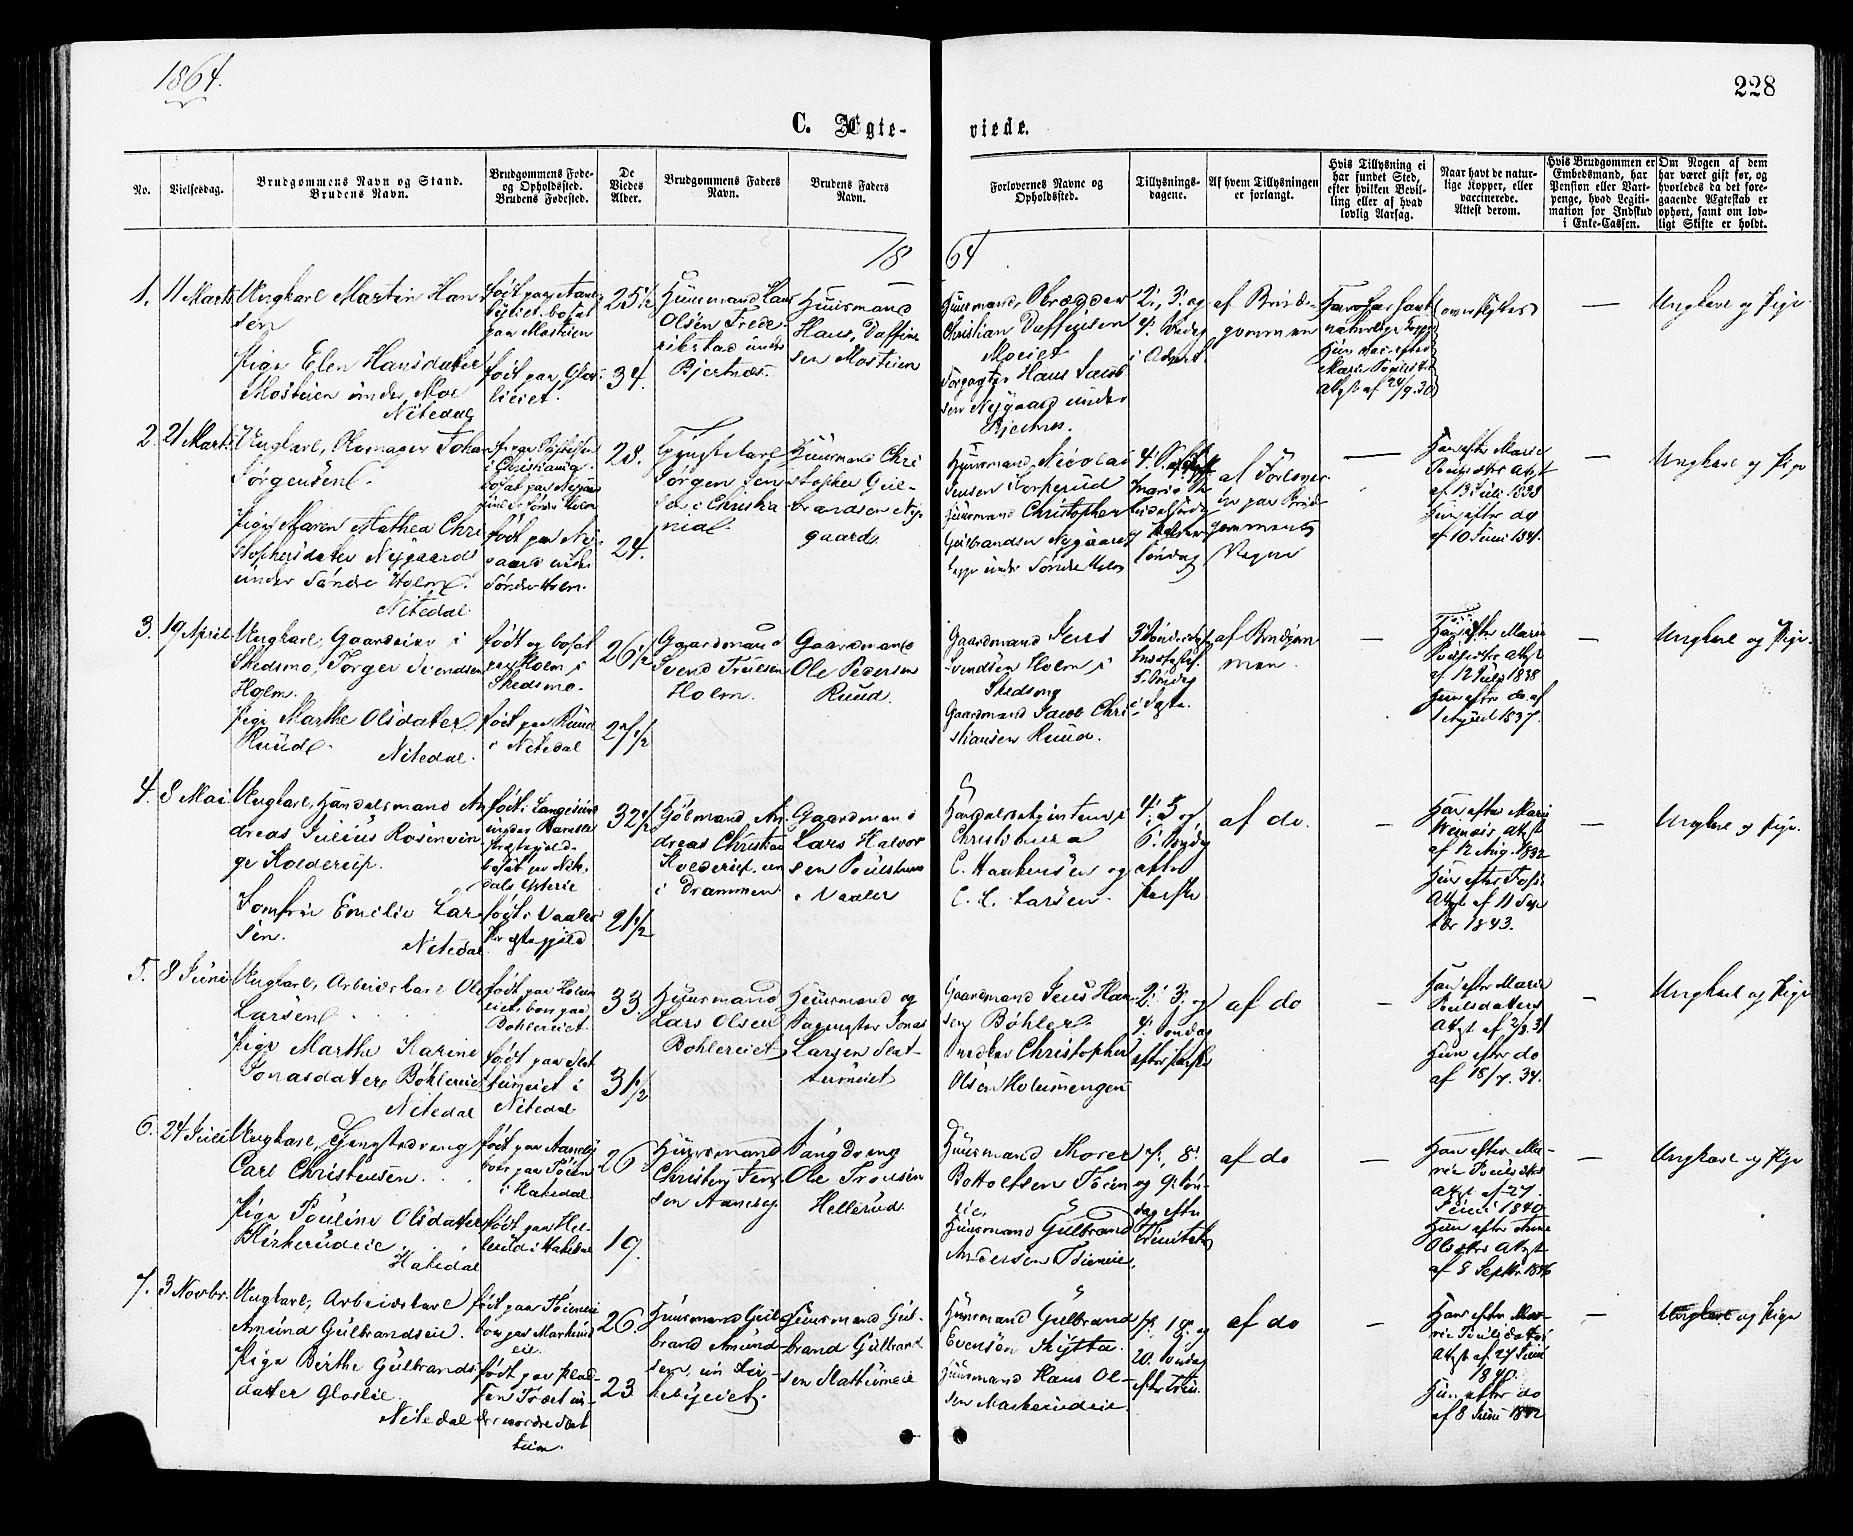 1864.
228
C. Ægte-
viede.
No.
Vielsesdag.
Brudgommens Navn og Stand.
Brudens Navn.
Brudgommens Føde-
og Opholdssted.
Brudens Fødested.
De
Viedes
Alder.
Brudgommens Faders
Navn.
Brudens Faders
Navn.
Forlovernes Navne og
Opholdssted.
Tillysnings-
dagene.
Af hvem Tillysningen
er forlangt.
Hvis Tillysning ei
har fundet Sted,
efter hvilken Bevil-
ling eller af hvad
lovlig Aarsag.
Naar havt de natur-
lige Kopper, eller
vaccinerede.
Attest derom.
Hvis Brudgommen er
Embedsmand, har
Pension eller Vart-
penge, hvad Legiti-
mation for Indskud
i Enke-Cassen.
Om Nogen af dem
har været gift før, og
hvorledes da det fore-
gaaende Ægteskab er
ophørt, samt om lov-
ligt Skifte er holdt.
18
64
1.
11 Marts
Ungkarl Martin Han
sen
Pige Elen Hansdatter
Mosteien under Moe
Nitedal
født paa
bosat
paa Mosteien
født paa Glos-
lieiet.
25 1/2
34.
Huusmand Hans
Olsen Frede-
rikstad under
Bjertnæs.
Huusmand
Hans
sen Mosteien
Huusmand
Christian
Moeiet
Forpagter Hans Jacob
sen Nygaard under
Bjertnes.
2:, 3: og
4: Søndag
i Advent.
af Brud-
gommen
Han har havt
naturlige Kopper
Hun vac. efter
Marie Poulsdtr
Attest af 24/9. 30
—
Ungkarl og Pige
2.
21 Marts
Ungkarl, Johan
Jørgensen.
Pige Maren Mathea Chri
stophersdatter Nygaard
under Søndre Holm.
Nitedal
i Christiania.
bosat paa Nygaard
under Søndre Holm
født paa Ny-
gaard under
Søndre Holm.
28.
24.
Jørgen Jen
sen i Christia
nia.
Huusmand Chri
stopher Gul-
brandsen Ny-
gaard.
Huusmand Nicolai
Jensen
Huusmand Christopher
Gulbrandsen Nygaard
under Søndre Holm
Søndag
af Forlover
ne paa Brud-
gommens
Vegne
—
Han efter Marie
Poulsdtrs Attest
af 13 Juli 1838
Hun efter do
af 10 Juni 184.
Ungkarl og Pige
3.
19 April
Ungkarl, Gaardeier i
Skedsmo, Torger Svendsen
Holm.
Pige Marthe Olsdatter
Ruud.
Nitedal.
født og bosat
paa Holm i
Skedsmo.
født paa Ruud
i Nitedal
26 1/2
27 1/2
Gaardmand
Svend Truulsen
Holm.
Gaardmand
Ole Pedersen
Ruud.
Gaardmand Jens
Svendsen Holm i
Skedsmo
Gaardmand Jacob Chri
stiansen Ruud.
3 Søndag
Søndag
i Faste.
af Brudgom
men.
—
Han efter Marie
Poulsdtrs Attest
af 12 Juli 1838
Hun efter do. af
1 August 1837.
—
Ungkarl og Pige.
4.
8 Mai
Ungkarl, Handelsmand An
dreas Julius Rosenvin
ge Holderup.
Jomfru Emilie Lar
sen.
Nitedal
født i Langesund
under Bamble
Præstegjeld.
bosat ved Nite-
dals
født i Vaaler
Præstegjeld.
32 1/2
21 1/2
An
dreas Christian
Holderup,
i Drammen
Gaardmand
Lars Halvor
sen
i Vaaler
i
Christiania
C. Haakensen og
C. L. Larsen.
4:, 5 og
6: Søndag
efter
Paaske.
af do.
—
Han efter Marie
Attest
af 12 Aug. 1832
Hun efter
Attest af 11 Sep
tbr 1843.
—
Ungkarl og Pige.
5.
8 Juni
Ungkarl, Arbeidskarl Ole
Larsen
Pige Marthe Karine
Jonasdatter Bøhlereiet
Nitedal
født paa Holum
eiet, boer paa
Bøhlereiet.
født paa Slat
tumeiet i
Nitedal
33.
31 1/2
Huusmand
Lars Olsen
Bøhlereiet
Huusmand og
Jonas
Larsen Slat-
tumeiet
Gaardmand Jens Han
sen Bøhler.
Snedker Christopher
Olsen Holumengen
2: 3: og
4: Søndag
efter Paaske
af do
—
Han efter Marie
Poulsdatters
Attest af 2/8. 31
Hun efter do
af 18/7. 34.
—
Ungkarl og Pige
6.
24 Juli
Ungkarl, Tjenestedreng
Carl Christensen.
Pige Pauline Olsdatter
Kirkerudeie.
Hakedal
født paa Aaneby
boer paa Tøien
i Hakedal
født paa Hel-
lerud i Hakedal
26.
19.
Huusmand
Christen Jen
sen Aaneby.
Ole Troelsen
Hellerud.
Huusmand
Bottolfsen Tøien
eie.
Huusmand Gulbrand
Andersen Tøieneie.
7:, 8:
og 9: Søn-
dag efter
Trinitatis
af do
—
Han efter Ma-
rie Poulsdtrs
Attest af 27.
Juni 1840
Hun efter Anne
Olsdtrs Attest
af 8 Septbr 1846
—
Ungkarl og Pige
7.
3 Novbr.
Ungkarl, Arbeidskarl
Amund Gulbrandseie.
Pige Birthe Gulbrands
datter Gloslie.
Nitedal
født paa Tøieneie
boer paa Markerud
eie.
født paa
un-
der nordre Slat
tum.
26.
23
Huusmand Gul
brand Amund-
sen,
Huusmand Gul-
brand Gulbrand
sen Slattumeie
Huusmand Gulbrand
Evensen Kjøtta.
Huusmand Hans Ol-
sen Markerudeie.
18: og
20. Søndag
efter Trin.
af do
—
Han efter Ma-
rie Poulsdatters
Attest af 27 Juni
1840.
Hun efter do
af 8 Juni 1842
—
Ungkarl og Pige